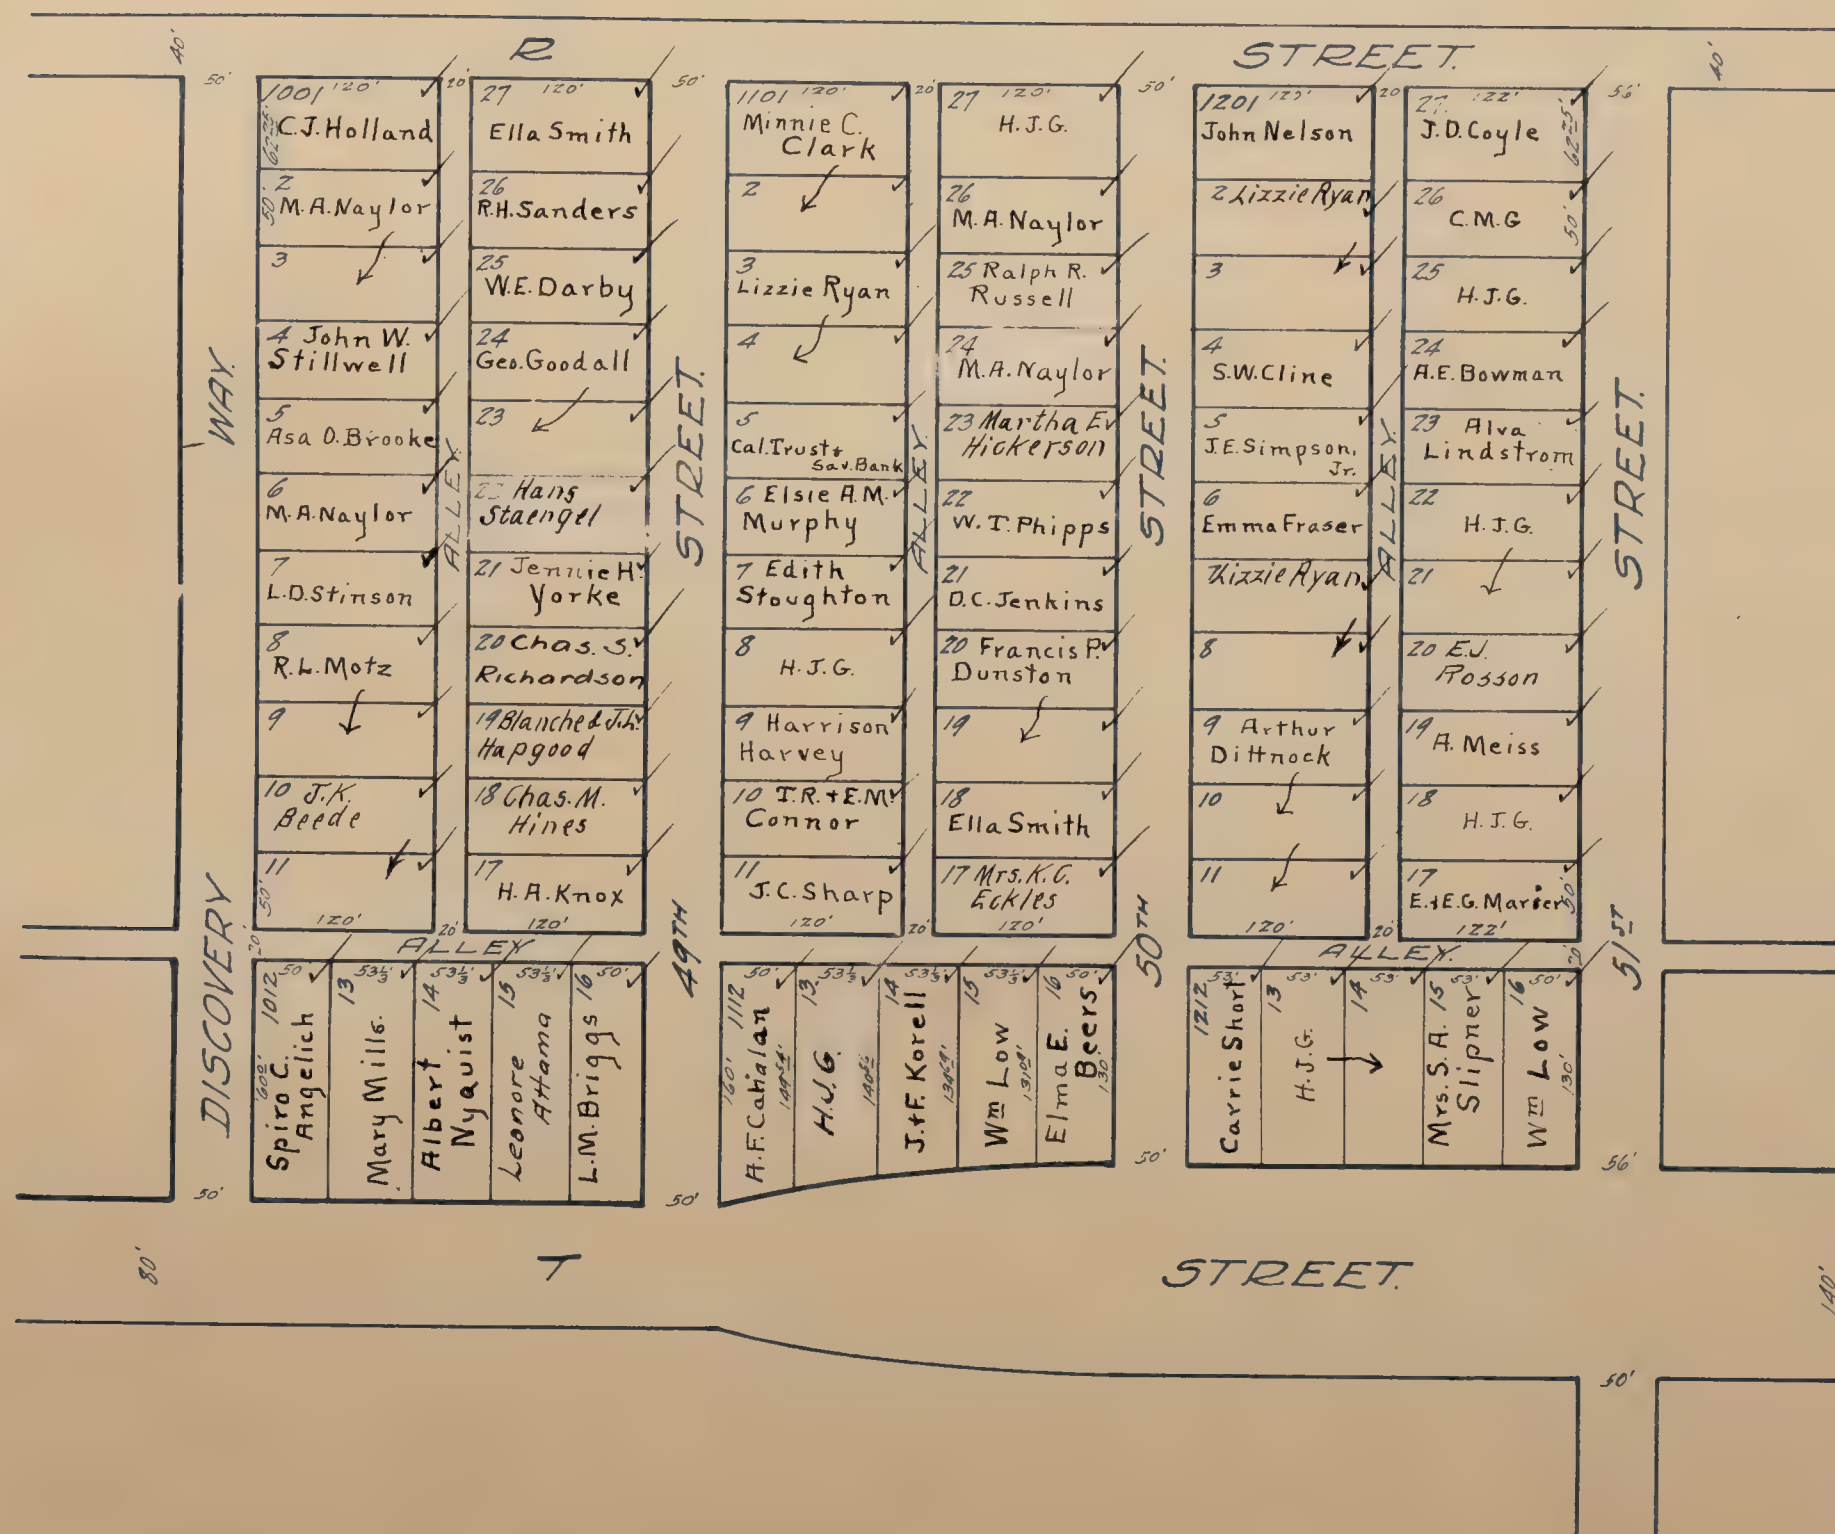 R STREET.
40'
40'
50'
20'
50'
20'
50'
20'
56'
1001 120'
62.25'
C.J. Holland
2
50'
M.A. Naylor
3
4 John W.
Stillwell
5
Asa D. Brooke
6
M.A. Naylor
7
L.D. Stinson
8
R.L. Motz
9
10 J.K.
Beede
11
50'
120'
ALLEY
20'
27 120'
Ella Smith
26
R.H. Sanders
25
W.E. Darby
24
Geo. Goodall
23
Hans
Staengel
21 Jennie H.
Yorke
20 Chas. S.
Richardson
19 Blanche & J.L.
Hapgood
18 Chas. M.
Hines
17
H.A. Knox
120'
1101 120'
Minnie C.
Clark
2
3
Lizzie Ryan
4
5
Cal. Trust &
Sav. Bank
6 Elsie A.M.
Murphy
7 Edith
Stoughton
8
H.J.G.
9 Harrison
Harvey
10 T.R. + E.M.
Connor
11
J.C. Sharp
120'
ALLEY.
20'
27 120'
H.J.G.
26
M.A. Naylor
25 Ralph R.
Russell
24
M.A. Naylor
23 Martha E.
Hickerson
22
W.T. Phipps
21
D.C. Jenkins
20 Francis P.
Dunston
19
18
Ella Smith
17 Mrs. K.C.
Eckles
120'
1201
John Nelson
2 Lizzie Ryan
3
4
S.W. Cline
5
J.E. Simpson,
Jr.
6
Emma Fraser
7 Lizzie Ryan
8
9 Arthur
Dittnock
10
11
120
ALLEY.
20'
27 122'
J.D. Coyle
62.25'
26
C.M.G
50'
25
H.J.G.
24
A.E. Bowman
23 Alva
Lindstrom
22
H.J.G.
21
20 E.J.
Rosson
19
A. Meiss
18
H.J.G.
17
E. & E.G.
50'
122'
DISCOVERY WAY.
49TH STREET.
50TH STREET.
51ST STREET.
20'
ALLEY
ALLEY.
20'
1012 50'
160'
Spiro C.
Angelich
13 53⅓'
Mary Mills.
14 53⅓'
Albert
Nyquist
15 53⅓'
Leonore
16 50'
L.M. Briggs
1112 50'
160'
A.F. Cahalan
13 53⅓
H.J.G.
14 53⅓'
J. & F. Korell
15 53⅓'
Wm Low
16 50'
Elma E.
Beers
130'
1212 53'
Carrie Short
13 53'
H.J.G.
14 53'
15 53'
Mrs. S.A.
Slipner
16 50'
Wm Low
130'
50'
50'
50'
56'
80'
T STREET.
140'
50'